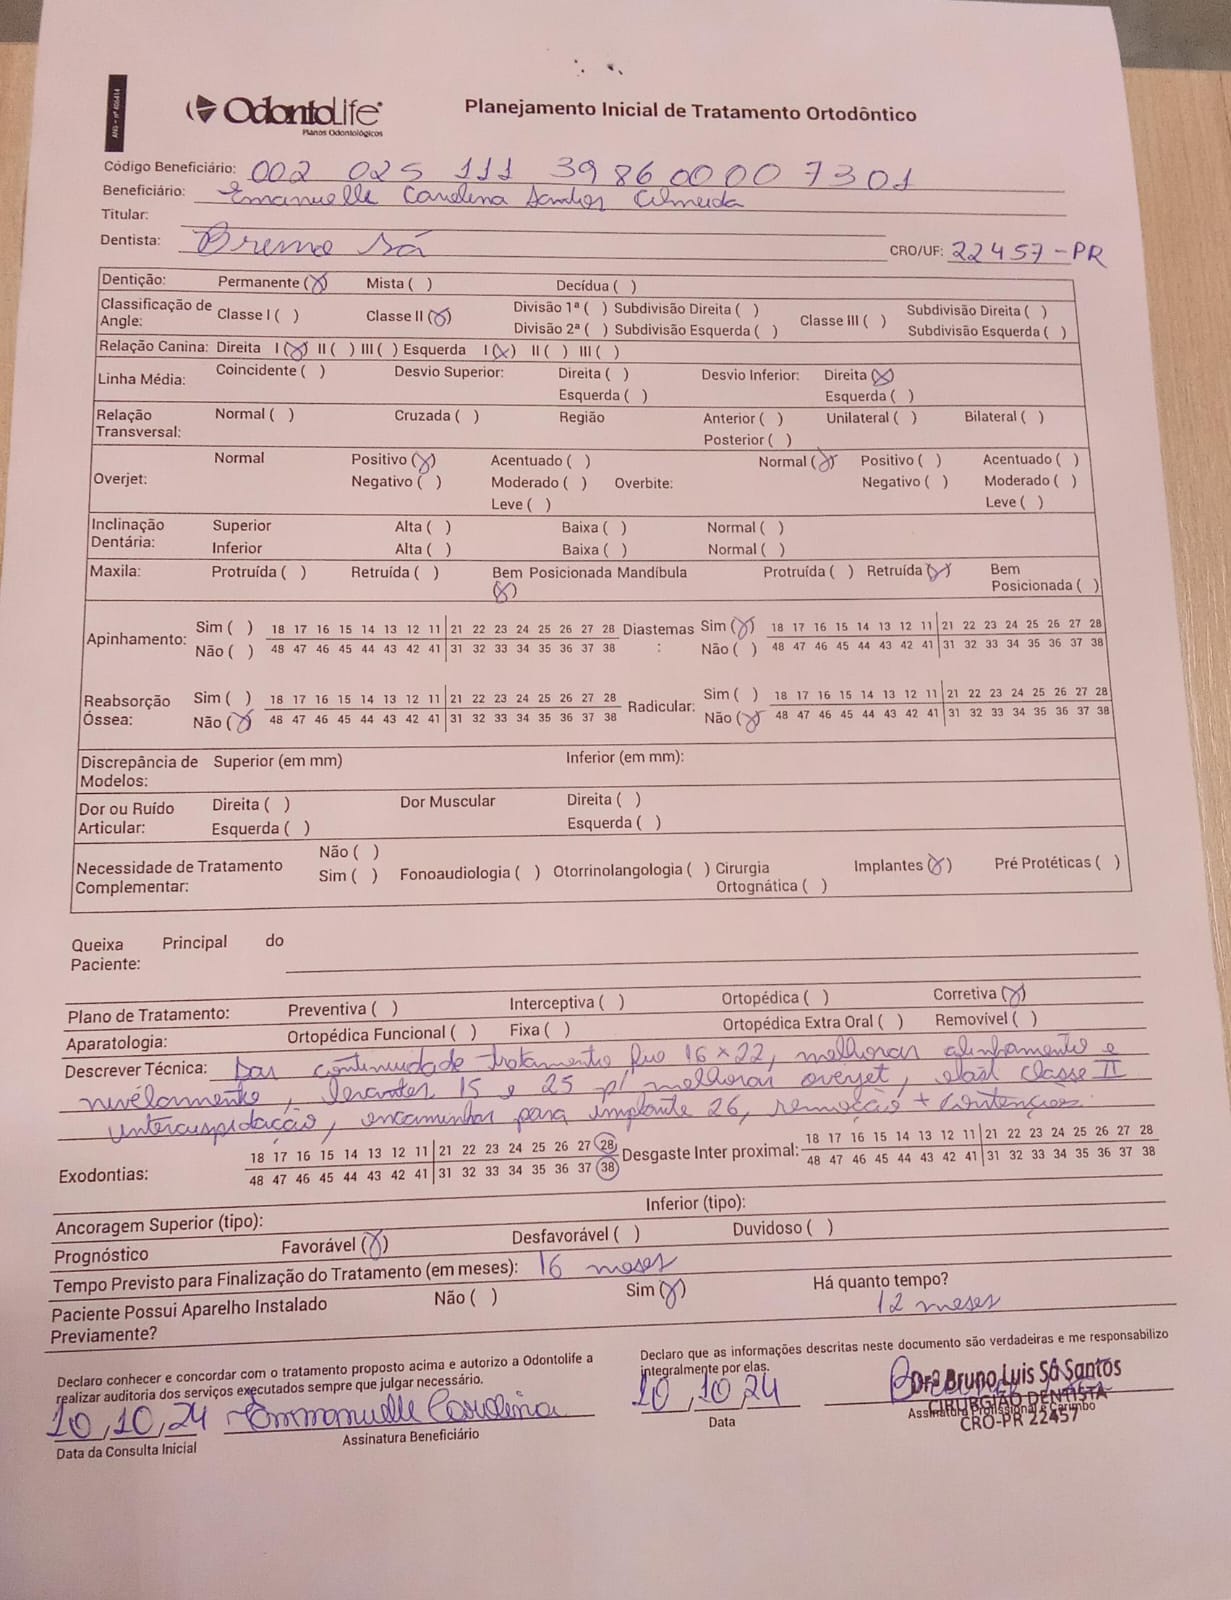 ANS - nº 406414
OdontoLife
Planos Odontológicos
Planejamento Inicial de Tratamento Ortodôntico
Código Beneficiário: 002 025 111 3986000007301
Beneficiário: Emanuelle Carolina Santos Almeida
Titular:
Dentista: Bruno Sá CRO/UF: 22457-PR
Dentição: Permanente (X) Mista ( ) Decídua ( )
Classificação de Angle: Classe I ( ) Classe II (X) Divisão 1ª ( ) Subdivisão Direita ( ) Classe III ( ) Subdivisão Direita ( )
Divisão 2ª ( ) Subdivisão Esquerda ( ) Subdivisão Esquerda ( )
Relação Canina: Direita I (X) II ( ) III ( ) Esquerda I (X) II ( ) III ( )
Linha Média: Coincidente ( ) Desvio Superior: Direita ( ) Desvio Inferior: Direita (X)
Esquerda ( ) Esquerda ( )
Relação Transversal: Normal ( ) Cruzada ( ) Região Anterior ( ) Unilateral ( ) Bilateral ( )
Posterior ( )
Overjet: Normal Positivo (X) Acentuado ( ) Overbite: Normal (X) Positivo ( ) Acentuado ( )
Negativo ( ) Moderado ( ) Negativo ( ) Moderado ( )
Leve ( ) Leve ( )
Inclinação Dentária: Superior Alta ( ) Baixa ( ) Normal ( )
Inferior Alta ( ) Baixa ( ) Normal ( )
Maxila: Protruída ( ) Retruída ( ) Bem Posicionada (X) Mandíbula Protruída ( ) Retruída (X) Bem Posicionada ( )
Apinhamento: Sim ( ) 18 17 16 15 14 13 12 11 21 22 23 24 25 26 27 28 Diastemas : Sim (X) 18 17 16 15 14 13 12 11 21 22 23 24 25 26 27 28
Não ( ) 48 47 46 45 44 43 42 41 31 32 33 34 35 36 37 38 Não ( ) 48 47 46 45 44 43 42 41 31 32 33 34 35 36 37 38
Reabsorção Óssea: Sim ( ) 18 17 16 15 14 13 12 11 21 22 23 24 25 26 27 28 Radicular: Sim ( ) 18 17 16 15 14 13 12 11 21 22 23 24 25 26 27 28
Não (X) 48 47 46 45 44 43 42 41 31 32 33 34 35 36 37 38 Não (X) 48 47 46 45 44 43 42 41 31 32 33 34 35 36 37 38
Discrepância de Modelos: Superior (em mm) Inferior (em mm):
Dor ou Ruído Articular: Direita ( ) Dor Muscular Direita ( )
Esquerda ( ) Esquerda ( )
Necessidade de Tratamento Complementar: Não ( )
Sim ( ) Fonoaudiologia ( ) Otorrinolangologia ( ) Cirurgia Ortognática ( ) Implantes (X) Pré Protéticas ( )
Queixa Principal do Paciente:
Plano de Tratamento: Preventiva ( ) Interceptiva ( ) Ortopédica ( ) Corretiva (X)
Aparatologia: Ortopédica Funcional ( ) Fixa ( ) Ortopédica Extra Oral ( ) Removível ( )
Descrever Técnica: Dar continuidade tratamento fio 16x22, melhorar alinhamento e
nivelamento, levantes 15 e 25 p/ melhorar overjet, elást classe II
intercuspidação, encaminhar para implante 26, remoção + contenções.
Exodontias: 18 17 16 15 14 13 12 11 21 22 23 24 25 26 27 28 Desgaste Inter proximal: 18 17 16 15 14 13 12 11 21 22 23 24 25 26 27 28
48 47 46 45 44 43 42 41 31 32 33 34 35 36 37 38 48 47 46 45 44 43 42 41 31 32 33 34 35 36 37 38
Ancoragem Superior (tipo): Inferior (tipo):
Prognóstico Favorável (X) Desfavorável ( ) Duvidoso ( )
Tempo Previsto para Finalização do Tratamento (em meses): 16 meses
Paciente Possui Aparelho Instalado Previamente? Não ( ) Sim (X) Há quanto tempo?
12 meses
Declaro conhecer e concordar com o tratamento proposto acima e autorizo a Odontolife a
realizar auditoria dos serviços executados sempre que julgar necessário.
Declaro que as informações descritas neste documento são verdadeiras e me responsabilizo
integralmente por elas.
10,10,24 Emmanuelle Carolina 10,10,24
Data da Consulta Inicial Assinatura Beneficiário Data Assinatura Profissional e Carimbo
Drº Bruno Luis Sá Santos
CIRURGIÃO DENTISTA
CRO-PR 22457